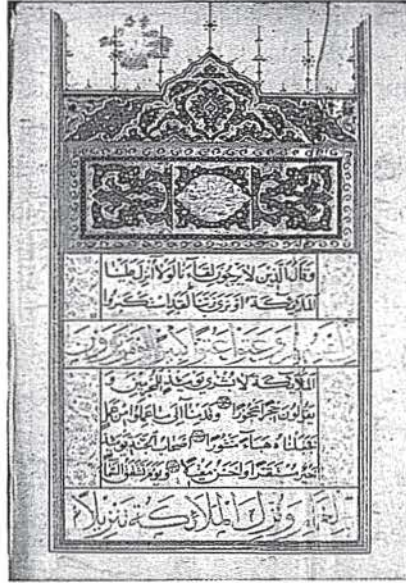 وقال الذين لا يرجون لقاءنا لولا انزل علينا
الملائكة او نرى ربنا لقد استكبروا
في انفسهم وعتوا عتوا كبيرا يوم يرون
الملائكة لا بشرى يومئذ للمجرمين و
يقولون حجرا محجورا وقدمنا الى ما عملوا من عمل
فجعلناه هباء منثورا اصحاب الجنة يومئذ
خير مستقرا واحسن مقيلا ويوم تشقق السماء
بالغمام ونزل الملائكة تنزيلا